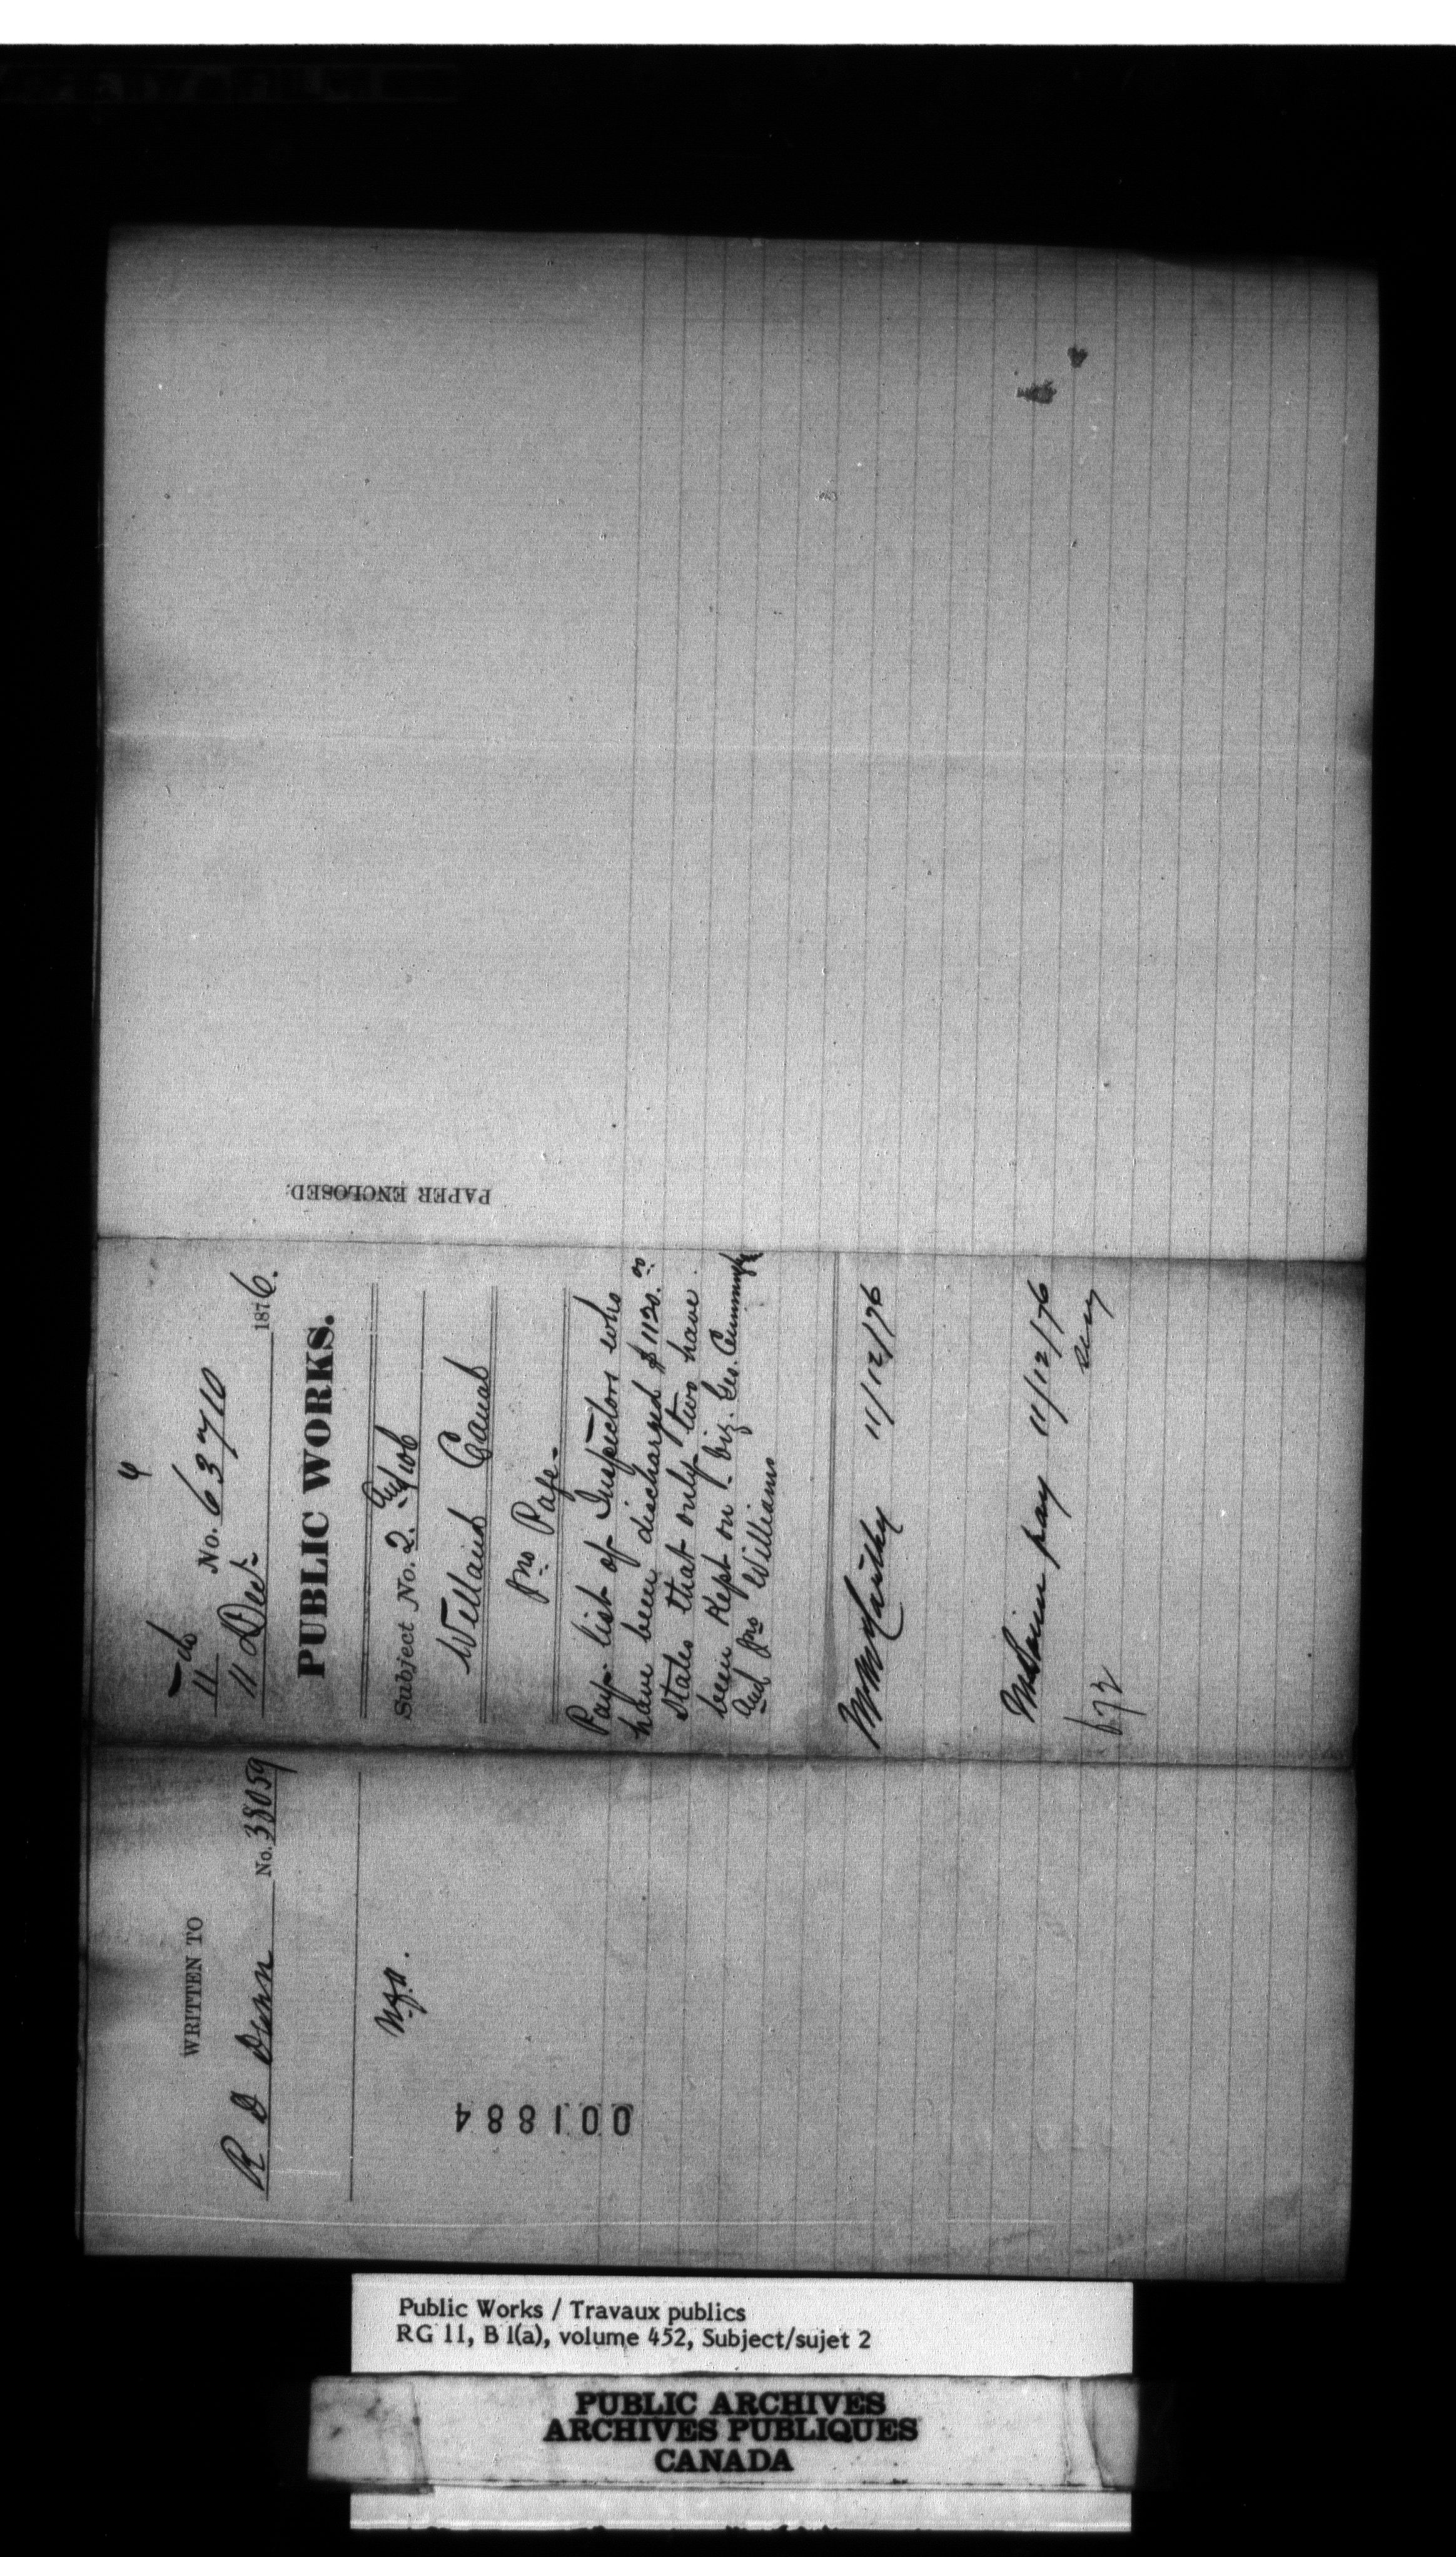 WRITTEN TO
R D Dunn No. 38059
001884
No. 63710
11
11 Decr 1876.
PUBLIC WORKS.
Subject No. 2.
Welland Canal
Jno Page
Pay list of Inspectors who
have been discharged $1120.00
States that only two have
been kept on. viz. Geo. Cummings
and Jno Williams
11/12/76
pay 11/12/76
672
PAPER ENCLOSED.
Public Works / Travaux publics
RG 11, B 1(a), volume 452, Subject/sujet 2
PUBLIC ARCHIVES
ARCHIVES PUBLIQUES
CANADA